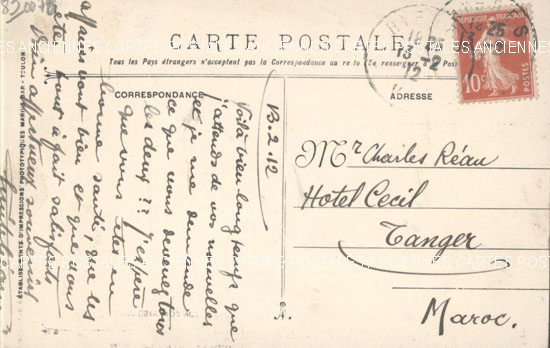 CARTE POSTALE
Tous les Pays étrangers n'acceptent pas la Correspondance au recto (Se renseigner à la Poste)
CORRESPONDANCE
ADRESSE
REPUBLIQUE FRANÇAISE
10c
POSTES
13-2
12
Mr Charles Réau
Hotel Cecil
Tanger
Maroc.
13.2.12
Voilà bien longtemps que
j'attends de vos nouvelles
et je me demande
ce que vous devenez tous
les deux ?? J'espère
que vous êtes en
bonne santé, que les
affaires vont bien et que vous
êtes tout à fait satisfaits
Bien affectueux souvenirs
ÉTABLISSEMENTS D'IMPRESSIONS PHOTOTYPIQUES MARIUS BAR - TOULON
CARTES POSTALES ANCIENNES